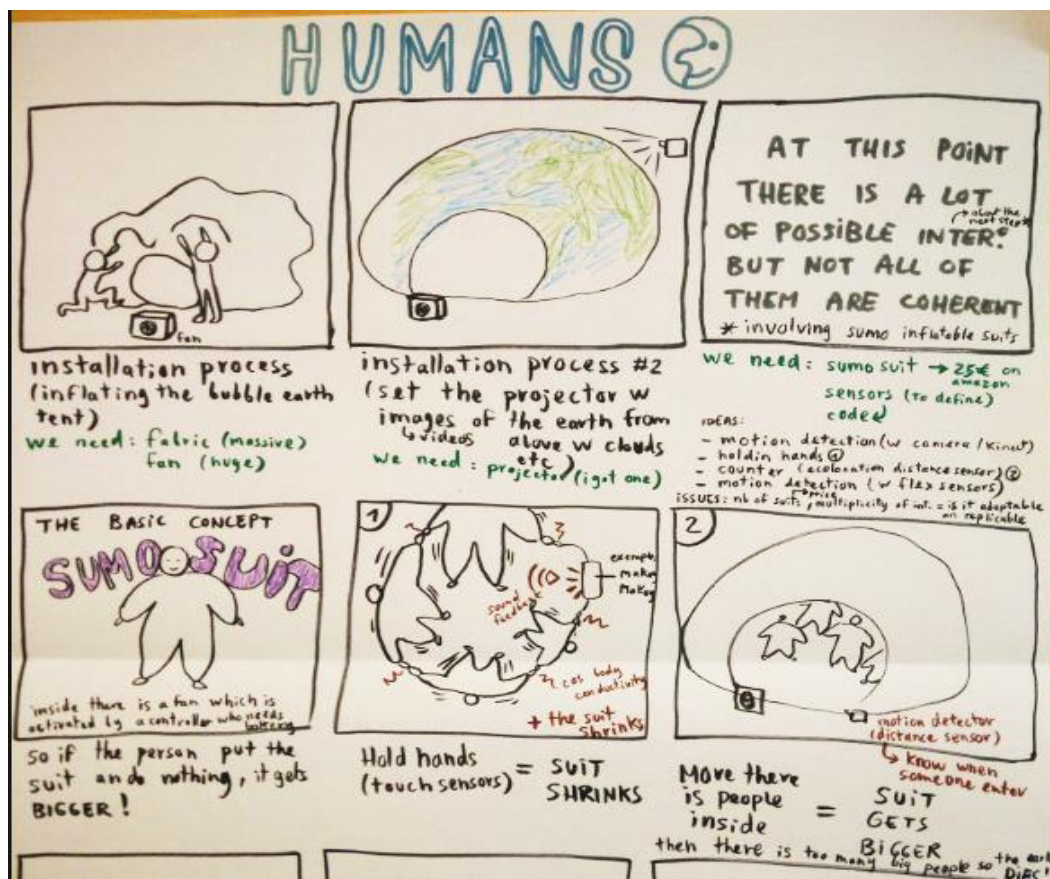 HUMANS
fan
installation process
(inflating the bubble earth
tent)
we need: fabric (massive)
fan (huge)
installation process #2
(set the projector w
images of the earth from
↳ videos above w clouds
etc)
we need: projector (i got one)
AT THIS POINT
THERE IS A LOT
about the
next step*
OF POSSIBLE INTER.
BUT NOT ALL OF
THEM ARE COHERENT
* involving sumo inflatable suits
we need: sumo suit → 25€ on
amazon
sensors (to define)
code
IDEAS:
- motion detection (w camera / kinect)
- holdin hands ①
- counter (ecolocation distance sensor) ②
- motion detection (w flex sensors)
ISSUES: nb of suits, multiplicity of int. = is it adaptable
price
or replicable
THE BASIC CONCEPT
SUMO SUIT
inside there is a fan which is
activated by a controller who needs
battery
so if the person put the
suit and do nothing, it gets
BIGGER!
1
exemple
Makey
Makey
sound
feedback
cos body
conductivity
+ the suit
shrinks
Hold hands = SUIT
(touch sensors) SHRINKS
2
motion detector
(distance sensor)
↳ know when
someone enter
More there
is people
inside
= SUIT
GETS
BIGGER
then there is too many big people so the earth
DIES!